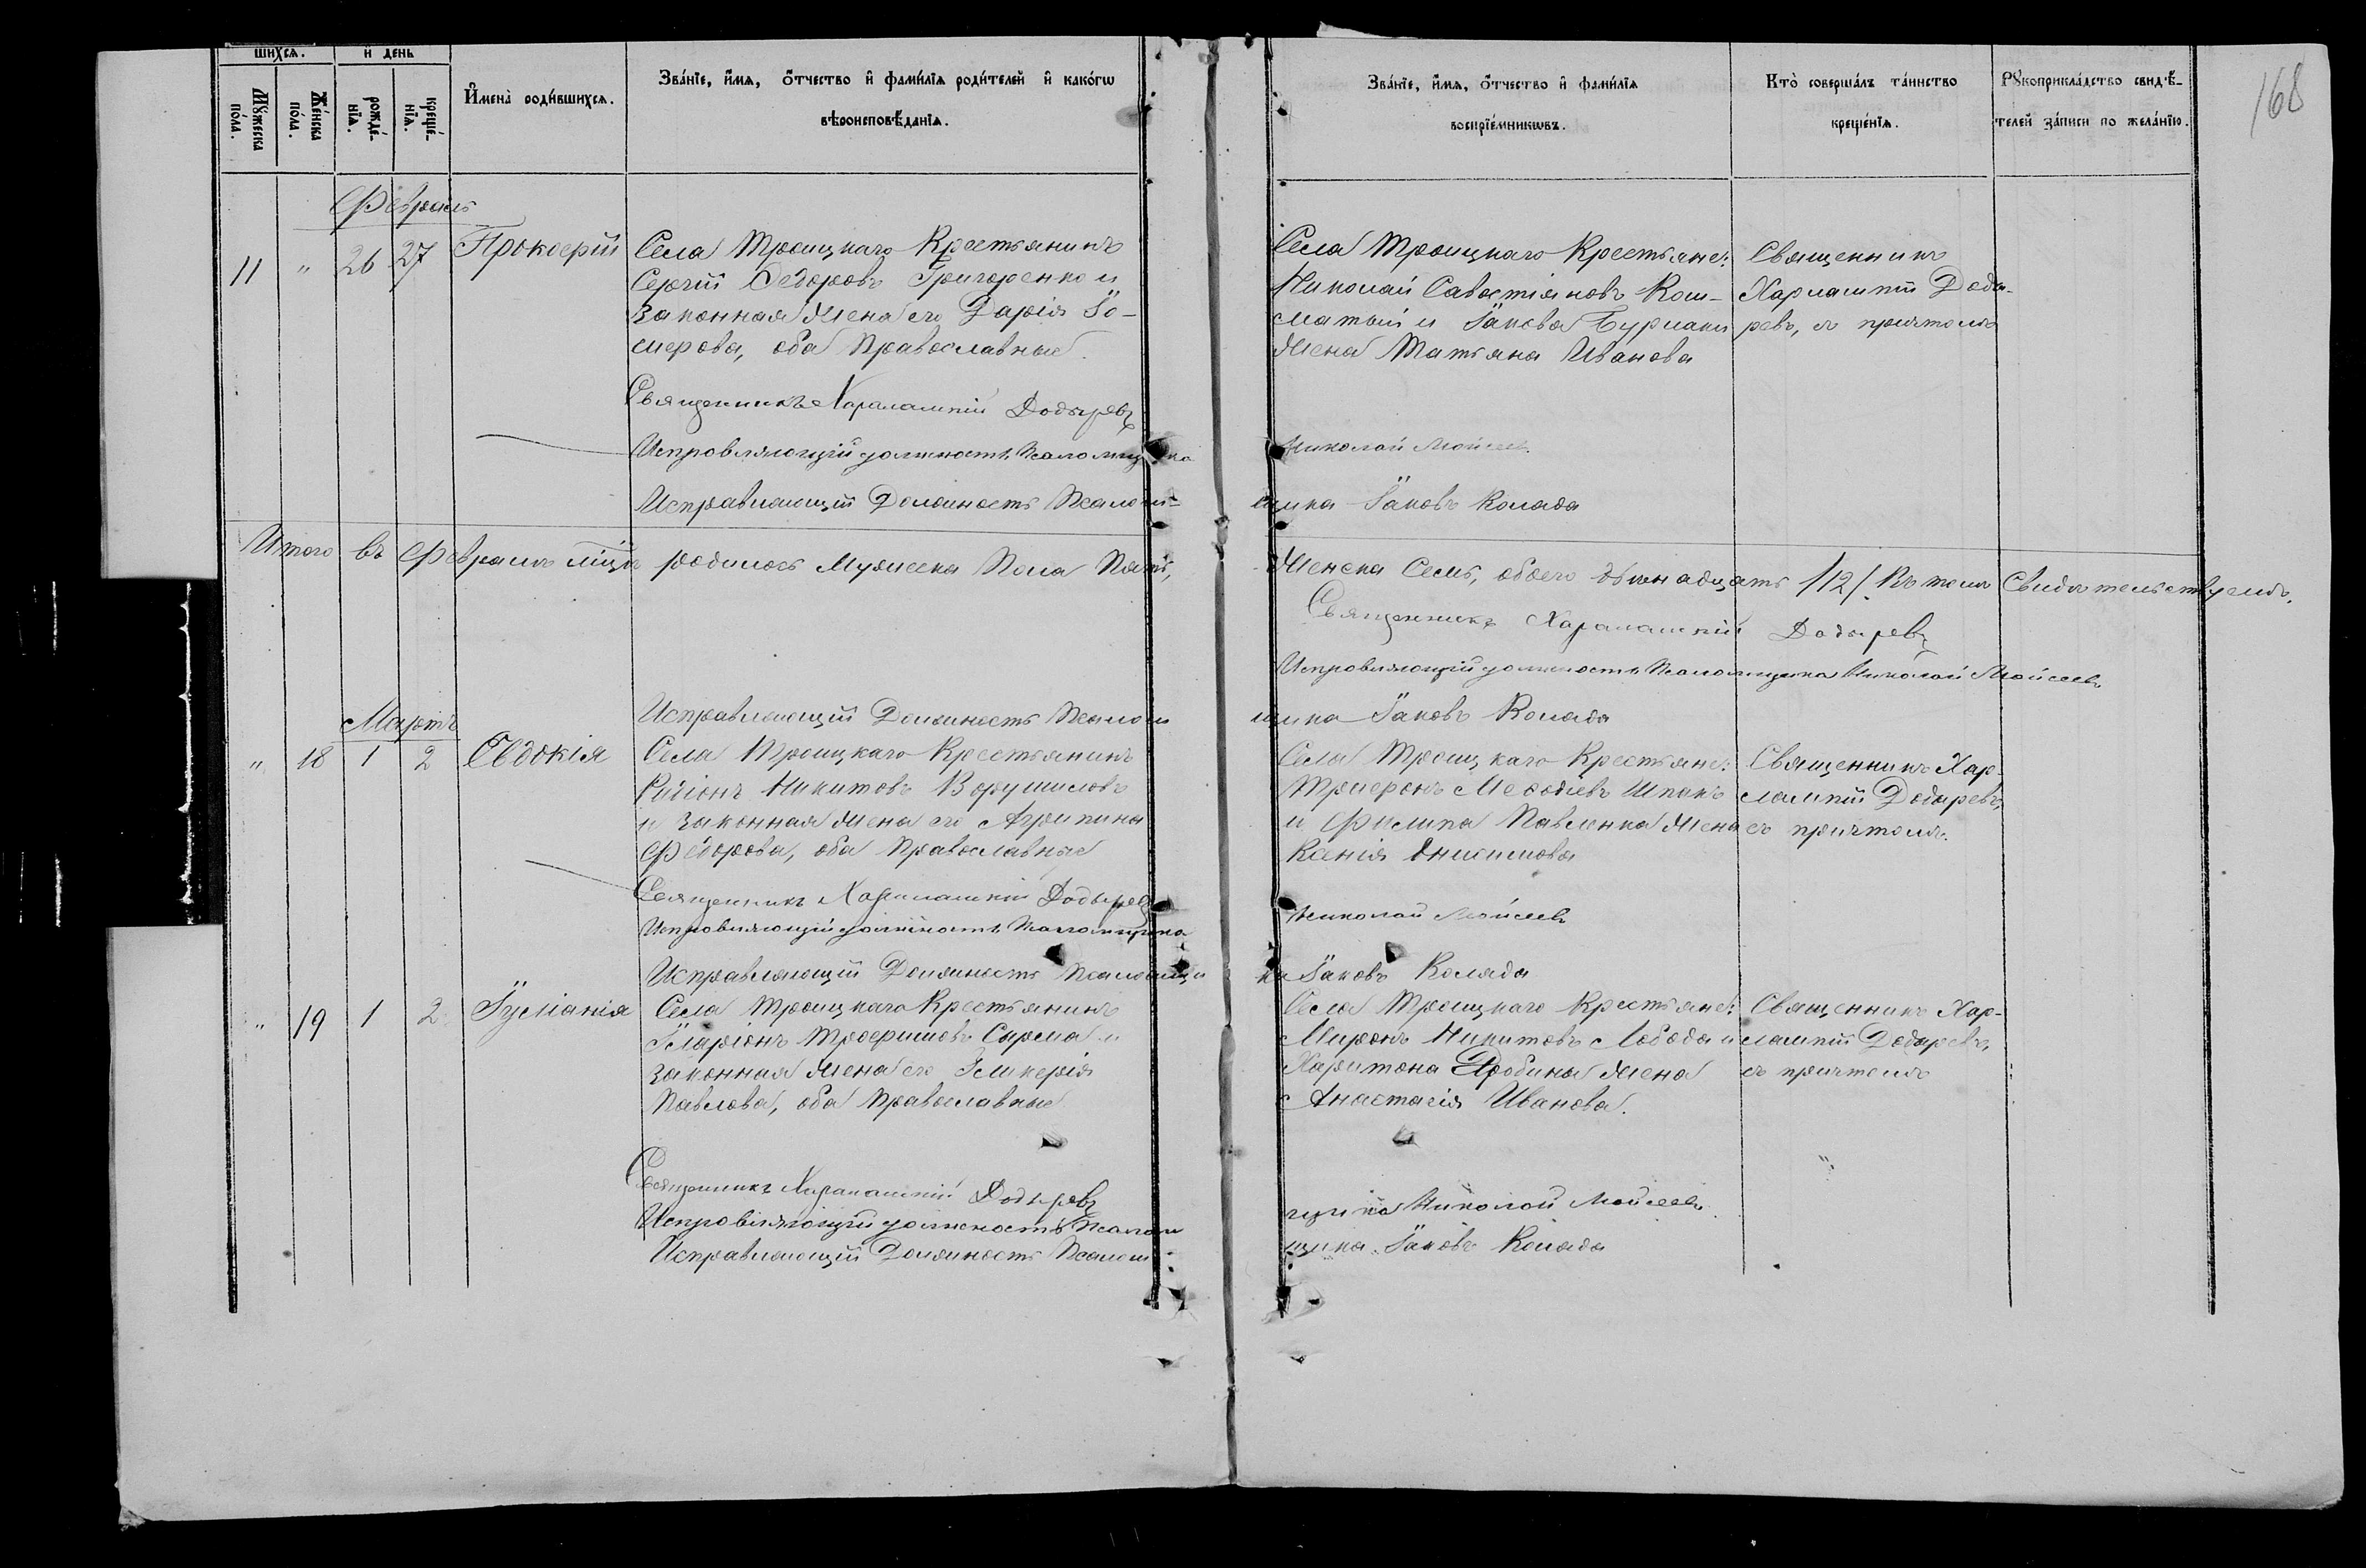 168
шихсѧ.
и день
Мꙋжеска пола.
Женска пола.
рожде-нїѧ.
креще-нїѧ.
Имена родившихсѧ.
Званїе, имѧ, отчество и фамилїѧ родителей и какогѡ
вѣроисповѣданїѧ.
Званїе, имѧ, отчество и фамилїѧ
воспрїемникѡвъ.
Кто совершалъ таинство
крещенїѧ.
Рꙋкоприкладство свидѣ-
телей записи по желанїю.
Февраль
11 " 26 27 Прокофій
Села Троицкаго Крестьянинъ
Сергій Ѳедоровъ Григоренко и
Законная Жена его Дарія Го-
мерова, оба Православные.
Села Троицкаго Крестьяне:
Николай Савостіяновъ Кош-
матый и Іакова Бурлаки
Жена Татьяна Иванова
Священникъ
Харлампій Доды-
ревъ, съ причтомъ
Священникъ Харалампій Додыревъ
Исправляющій должность Псаломщика Николай Мойсеевъ
Исправляющій Должность Псалом-
щика Іаковъ Коляда
Итого въ Февралѣ мѣцѣ родилось Мужеска Пола Пять,
Женска Семь, обоего двѣнадцать /12/. Въ томъ Свидѣтельствуемъ.
Священникъ Харалампій Додыревъ
Исправляющій должность Псаломщика Николай Мойсеевъ
Исправляющій Должность Псалом
щика Іаковъ Коляда
Мартъ
" 18 1 2 Евдокія
Села Троицкаго Крестьянинъ
Никитовъ Ворушиловъ
и Законная Жена его Агрипина
Федорова, оба Православные
Села Троицкаго Крестьяне:
Трифонъ Меѳодіевъ Шпакъ
и Филипа Павленка Жена
Ксенія Онисимова
Священникъ Хар-
лампій Додыревъ,
съ причтомъ.
Священникъ Харалампій Додыревъ
Исправляющій должность Псаломщика
Николай Мойсеевъ
Исправляющій Должность Псаломщи
ка Іаковъ Коляда
" 19 1 2 Іуліанія
Села Троицкаго Крестьянинъ
Іларіонъ Трофимовъ Сирма и
Законная Жена его Гликерія
Павлова, оба Православные
Села Троицкаго Крестьяне:
Миронъ Никитовъ Лобода и
Харитона Дробины Жена
Анастасія Иванова.
Священникъ Хар-
лампій Додыревъ,
съ причтомъ
Священникъ Харалампій Додыревъ
Исправляющій должность Псалом
щика Николай Мойсеевъ
Исправляющій Должность Псалом-
щика Іаковъ Коляда